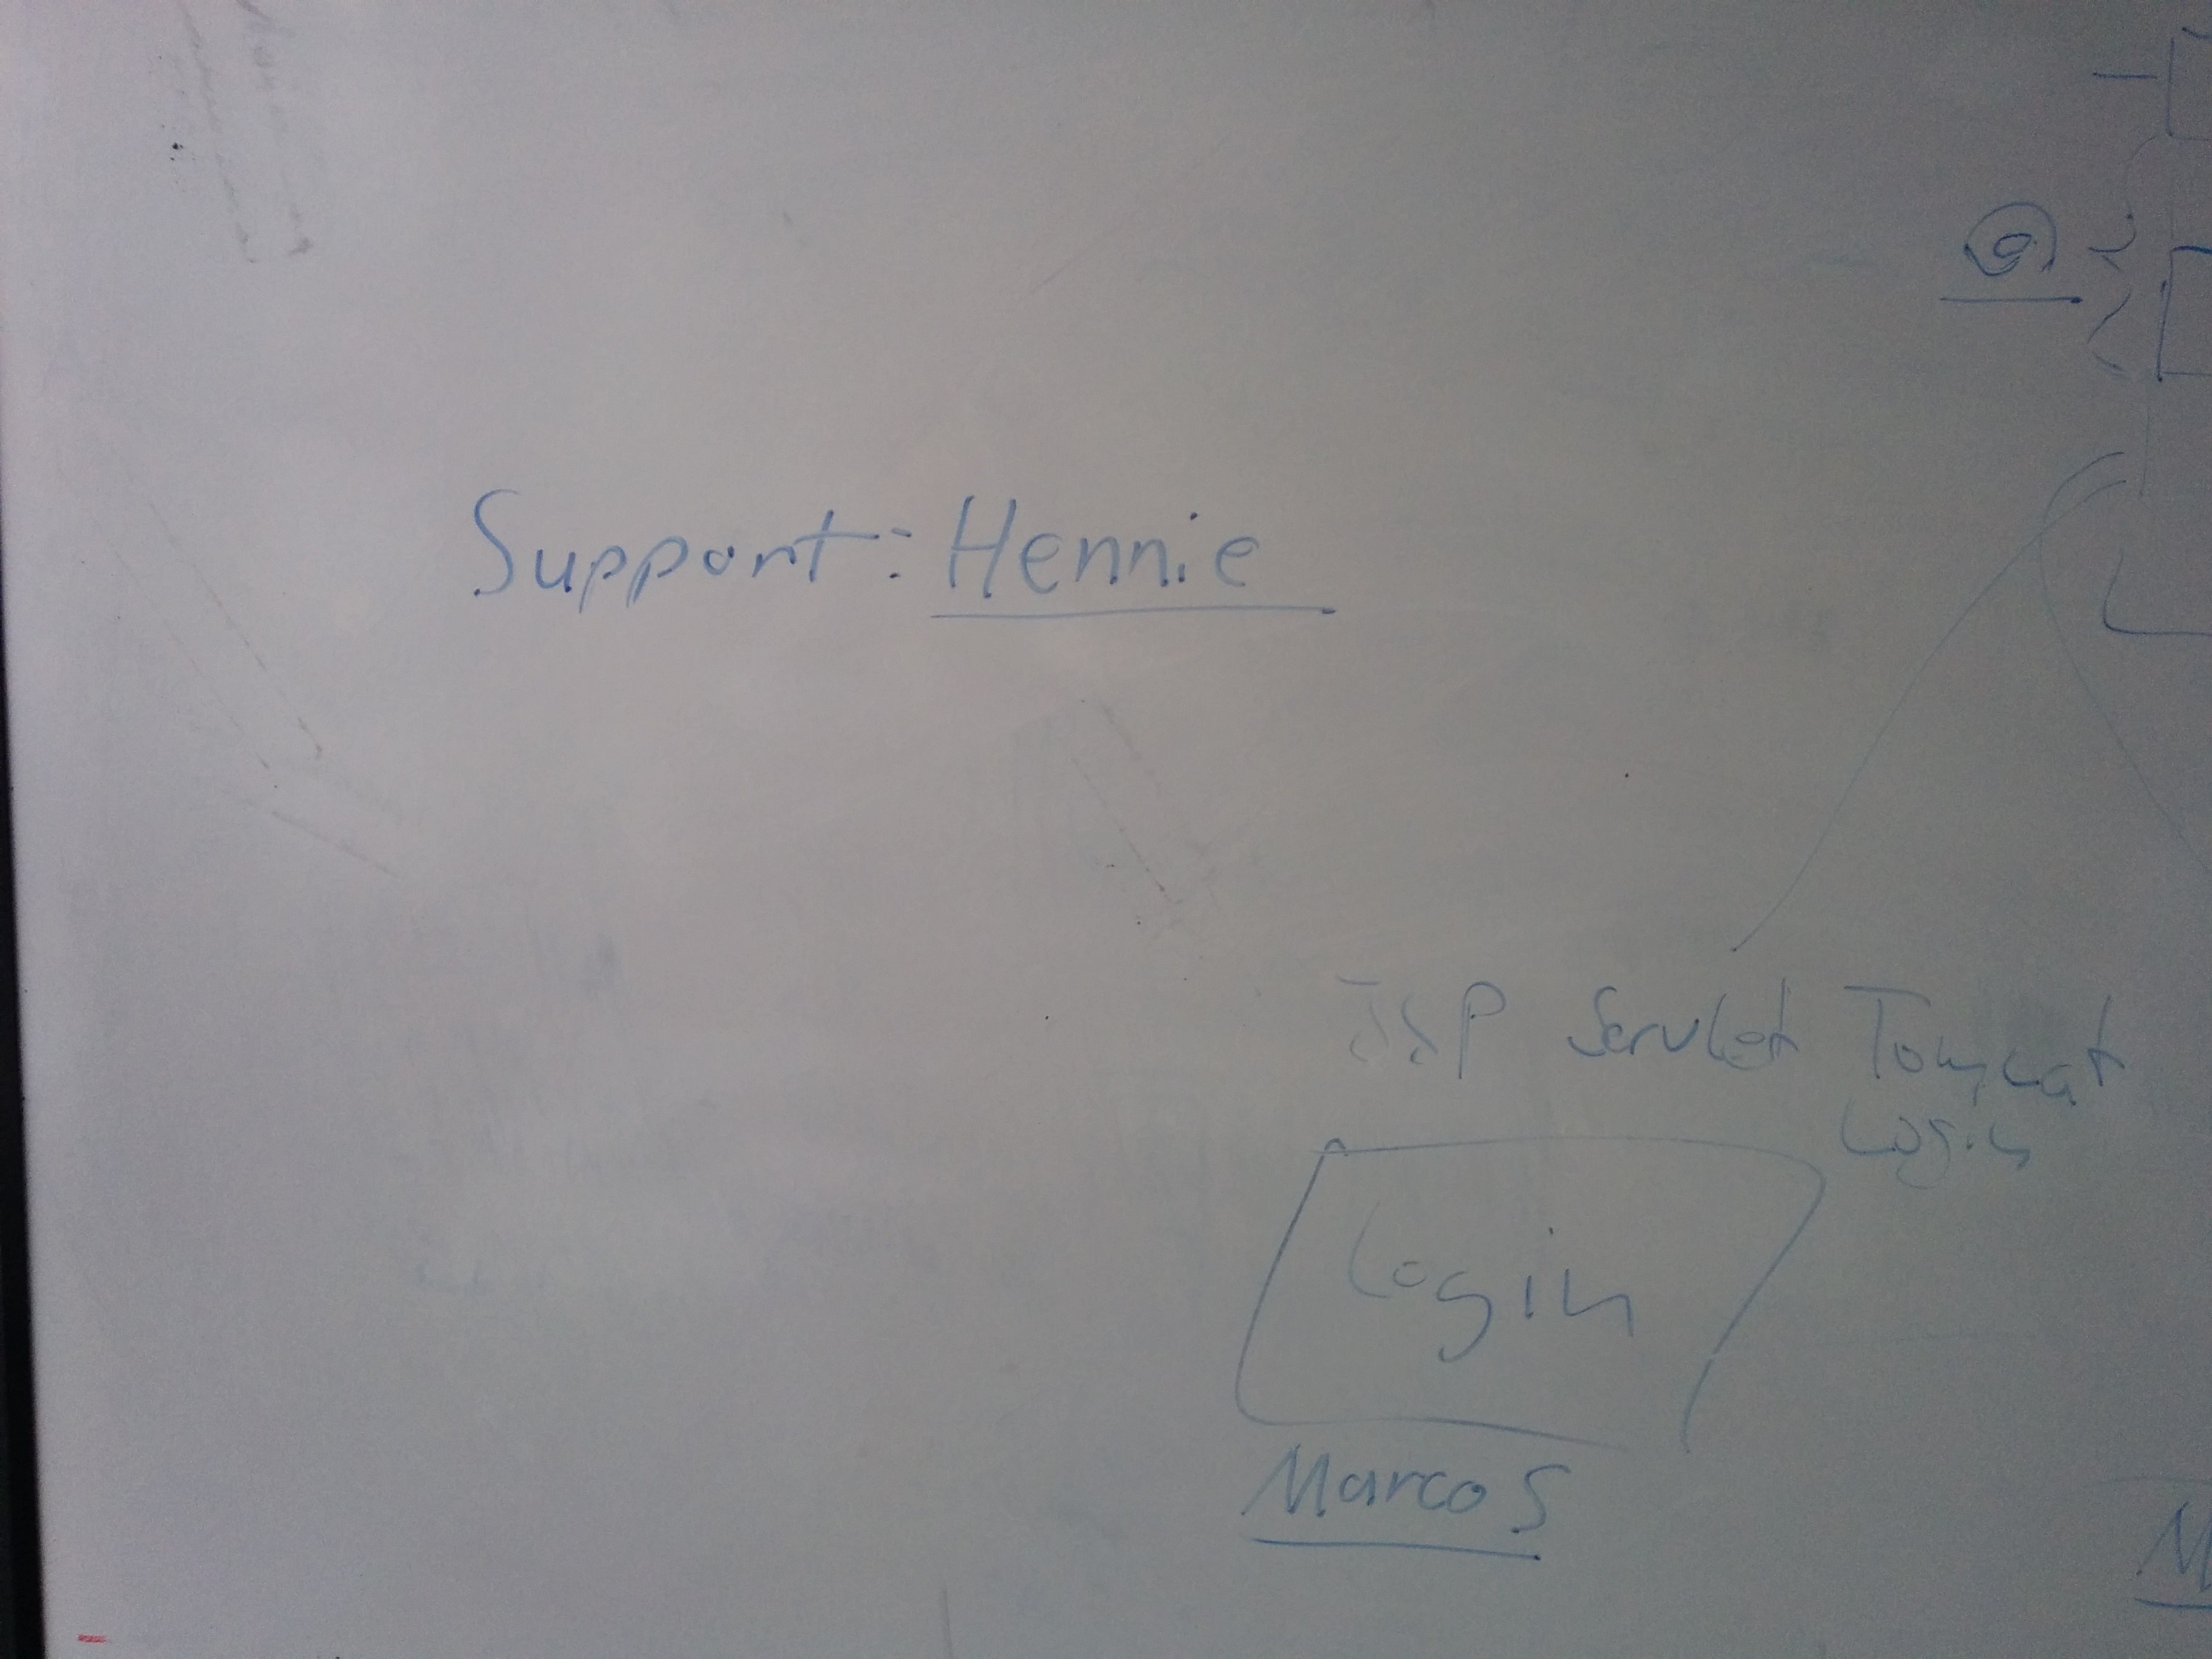 Support: Hennie
JSP Servlet Tomcat
Login
Login
Marco S